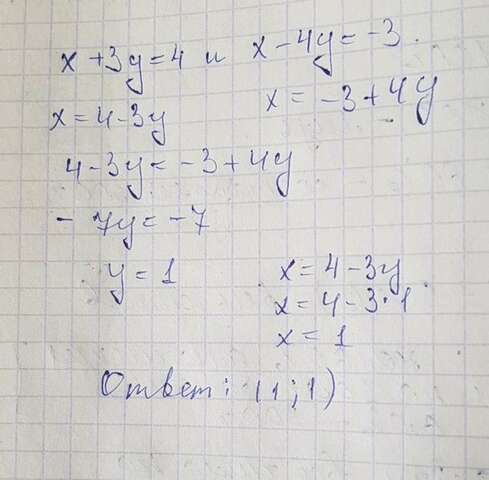 x + 3y = 4 и x - 4y = -3.
x = 4 - 3y x = -3 + 4y
4 - 3y = -3 + 4y
- 7y = -7
y = 1 x = 4 - 3y
x = 4 - 3 • 1
x = 1
Ответ: (1; 1)